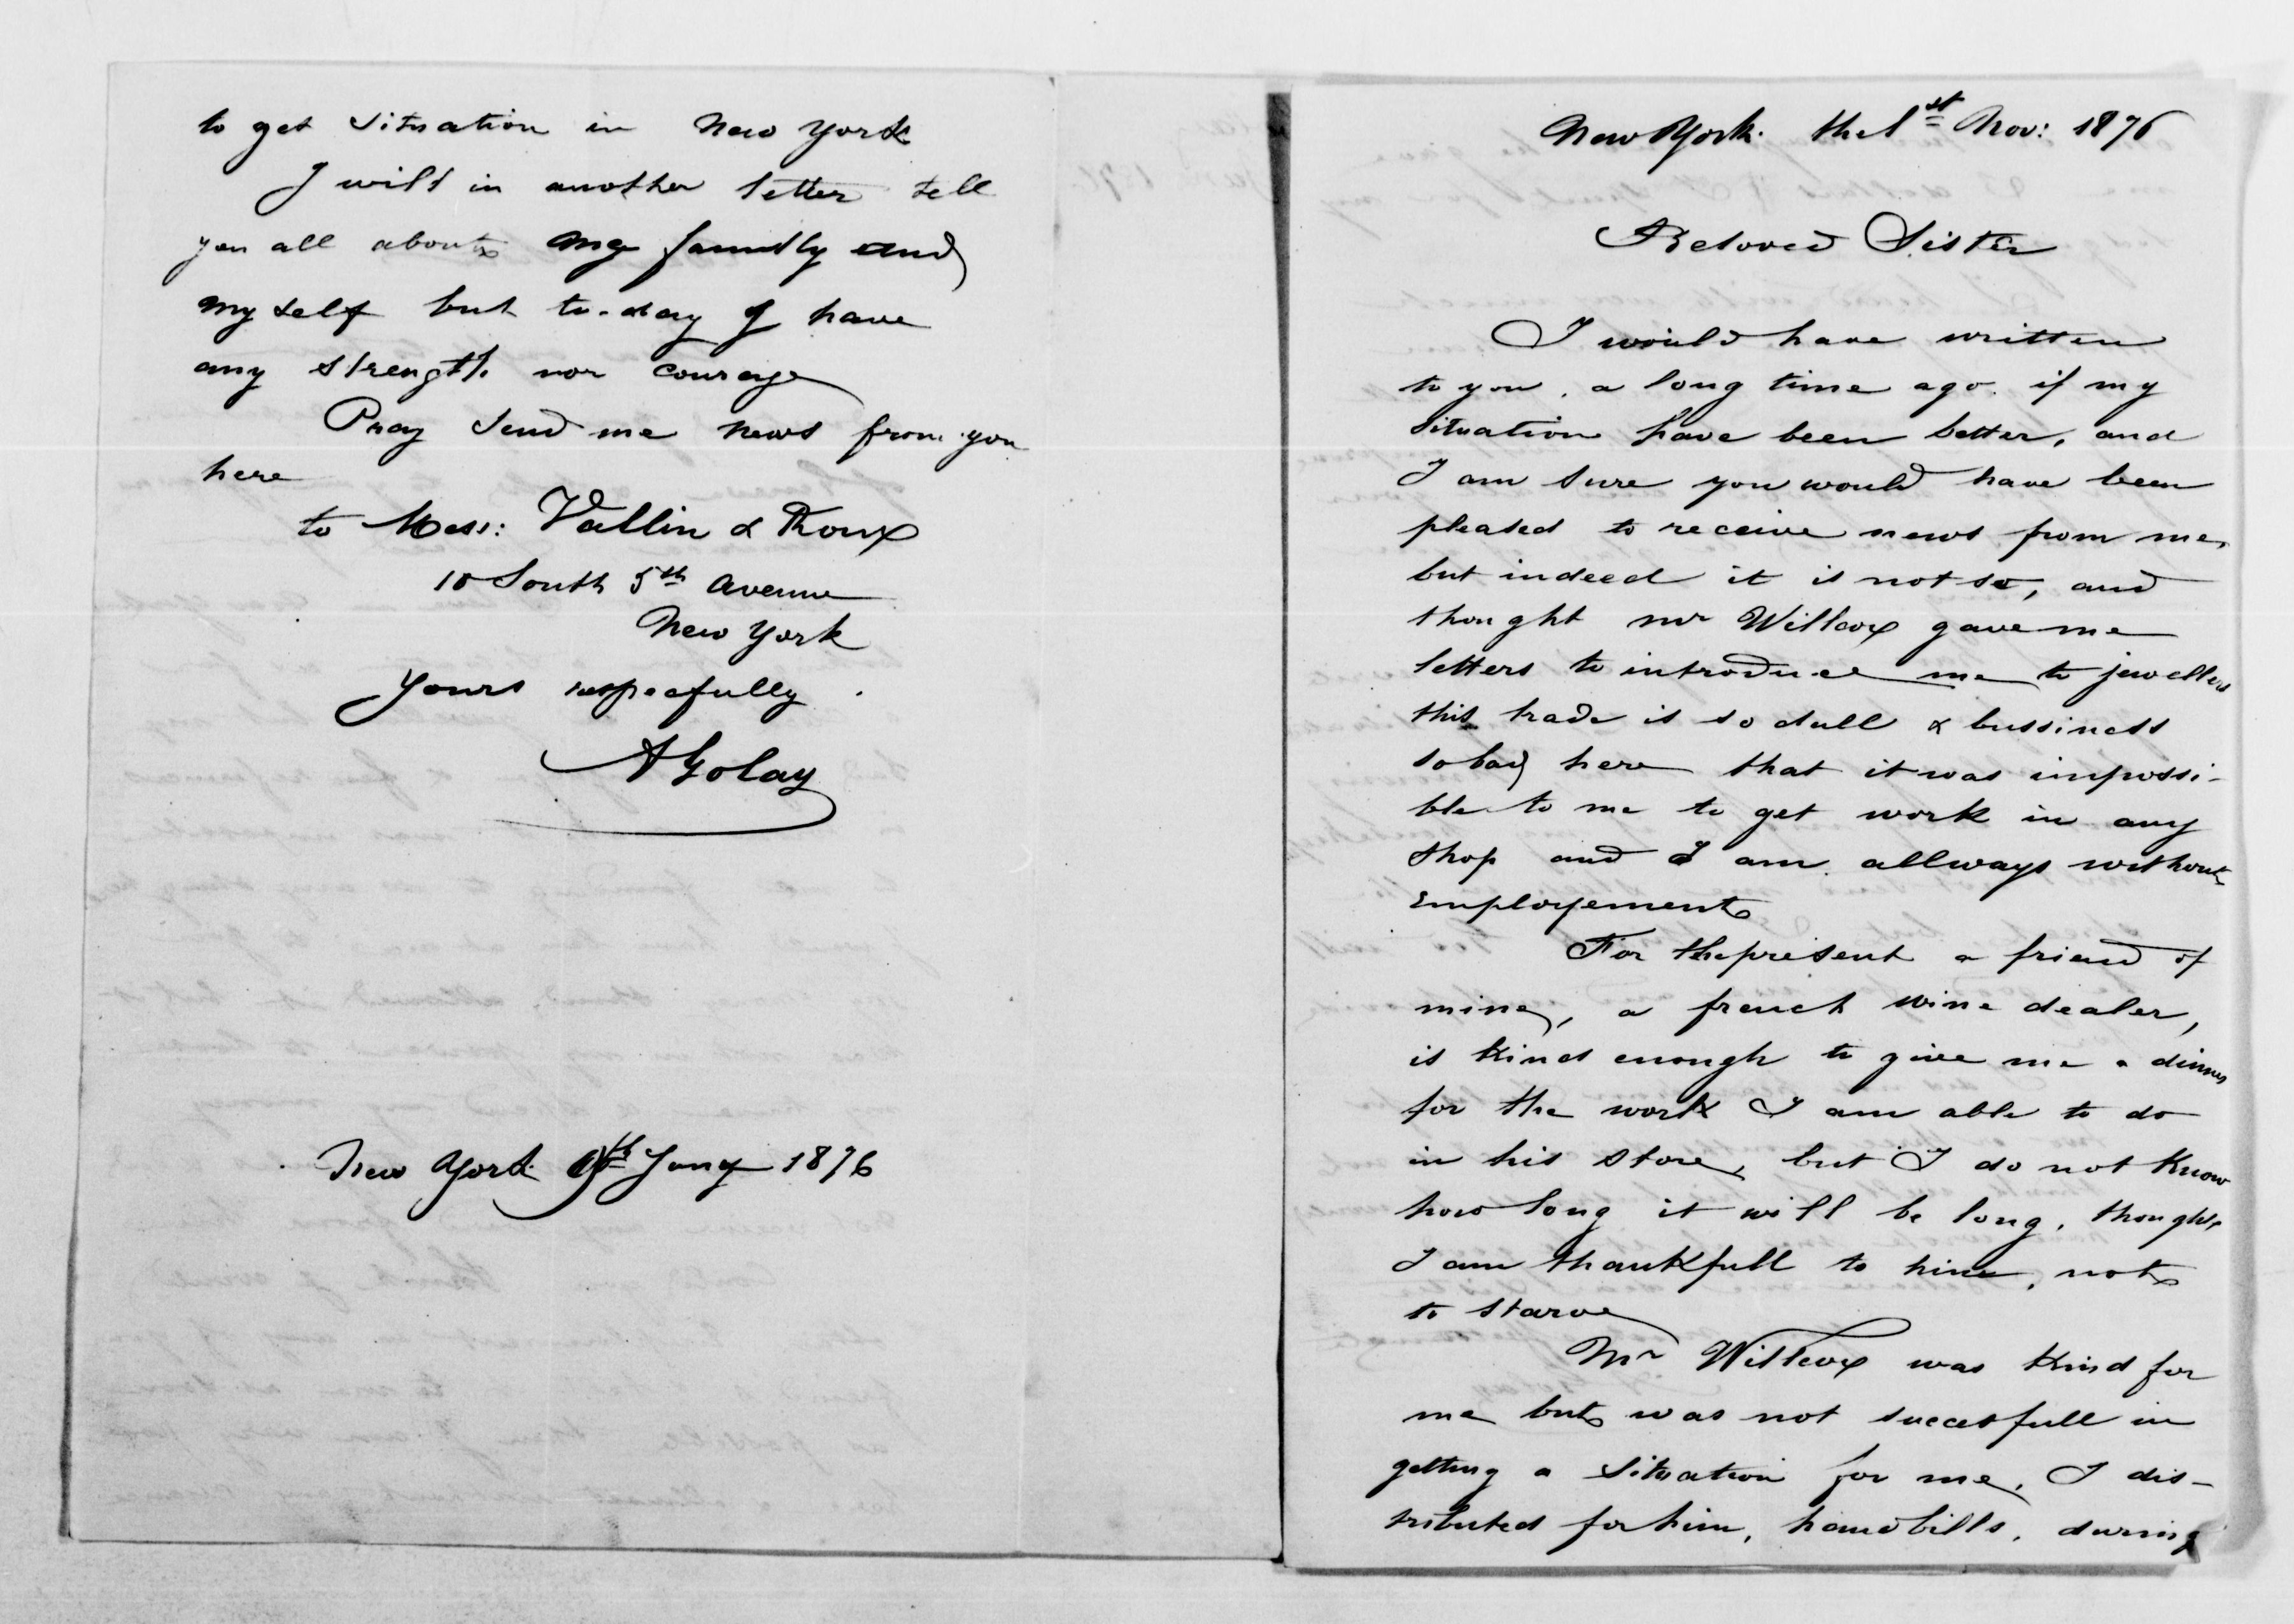 to get situation in New York
I will in another letter tell
you all about my familly and
my self but to-day I have
any strength nor courage
Pray send me news from you
here
to Mess: Vallin & Roux
10 South 5th Avenue
New York
Yours respecfully
A Golay
New York 9th Jany 1876
New York the 1st Nov: 1876
Beloved Sister
I would have written
to you, a long time ago. if my
situation have been better, and
I am sure you would have been
pleased to receive news from me,
but indeed it is not so, and
thought Mr Willcox gave me
letters to introduce me to jewellers
this trade is so dull & bussiness
so bad here that it was impossi-
ble to me to get work in any
shop and I am allways without
Employement
For the present a friend of
mine, a french wine dealer,
is kind enough to give me a dinner
for the work I am able to do
in his store, but I do not know
how long it will be long, though,
I am thankfull to him, not
to starve
Mr Willcox was kind for
me but was not succesfull in
getting a situation for me, I dis-
tributed for him, handbills, during